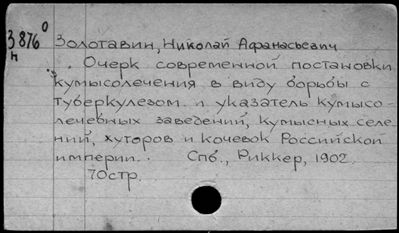 З 876⁰
н
Золотавин, Николай Афанасьевич
. Очерк современной постановки
кумысолечения в виду борьбы с
туберкулезом и указатель кумысо-
лечебных заведений, кумысных селе-
ний, хуторов и кочевок Российской
империи. Спб., Риккер, 1902.
70стр.